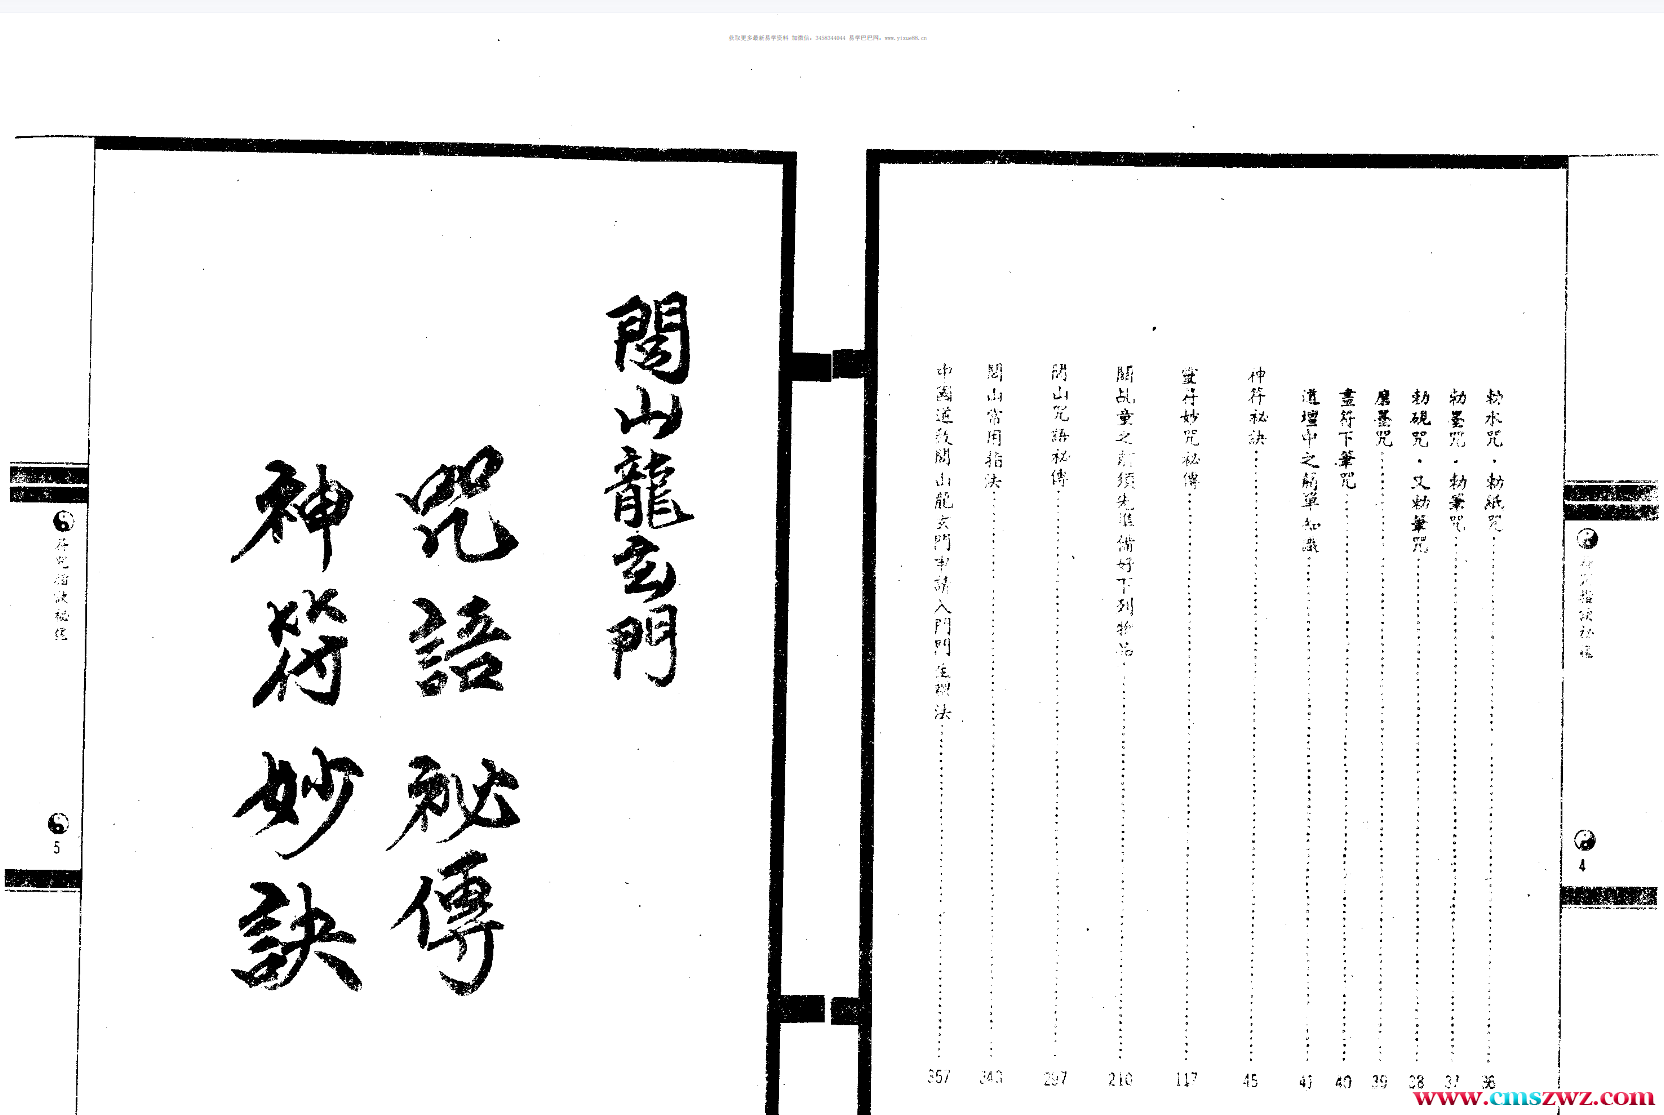 获取更多最新易学资料 加微信：3458344044 易学巴巴网：www.yixue88.cn
勅水咒・勅紙咒 36
勅墨咒・勅筆咒 37
勅硯咒・又勅筆咒 38
磨墨咒 39
畫符下筆咒 40
道壇中之簡單知識 41
神符秘訣 45
靈符妙咒秘傳 117
關乩童之前須先準備好下列物品 210
閭山咒語秘傳 297
閭山常用指法 343
中國道教閭山龍玄門申請入門門生辦法 357
符咒指訣秘傳
4
閭山龍玄門
咒語秘傳
神符妙訣
符咒指訣秘傳
5
www.cmszwz.com